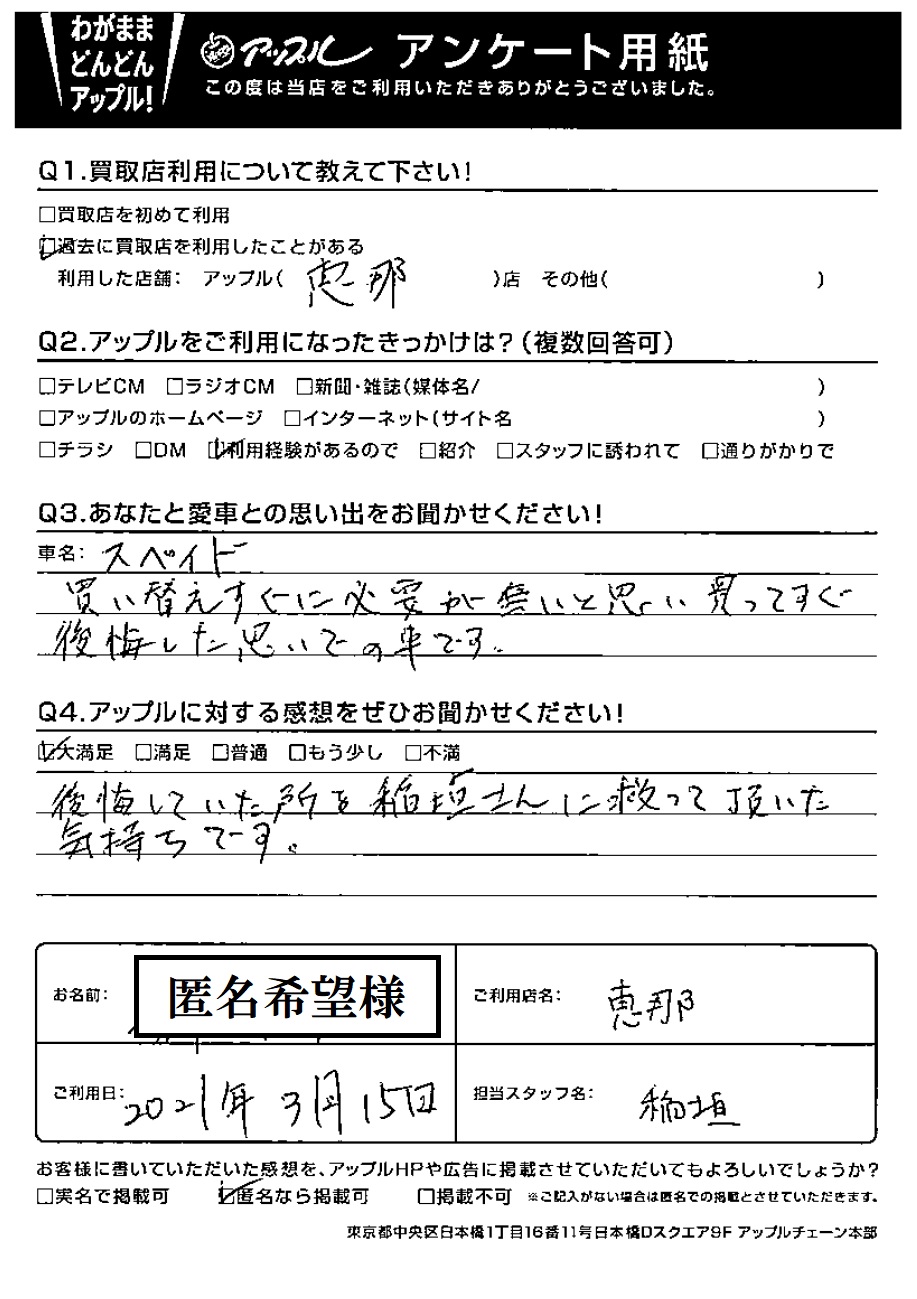 わがまま
どんどん
アップル!
アップル アンケート用紙
この度は当店をご利用いただきありがとうございました。
Q1.買取店利用について教えて下さい!
□買取店を初めて利用
☑過去に買取店を利用したことがある
利用した店舗: アップル( 恵那 )店 その他( )
Q2.アップルをご利用になったきっかけは?(複数回答可)
□テレビCM □ラジオCM □新聞・雑誌(媒体名/ )
□アップルのホームページ □インターネット(サイト名 )
□チラシ □DM ☑利用経験があるので □紹介 □スタッフに誘われて □通りがかりで
Q3.あなたと愛車との思い出をお聞かせください!
車名: スペイド
買い替えすぐに必要が無いと思い買ってすぐ
後悔した思いでの車です.
Q4.アップルに対する感想をぜひお聞かせください!
☑大満足 □満足 □普通 □もう少し □不満
後悔していた所を稲垣さんに救って頂いた
気持ちです。
お名前: 匿名希望様
ご利用店名: 恵那
ご利用日: 2021年3月15日
担当スタッフ名: 稲垣
お客様に書いていただいた感想を、アップルHPや広告に掲載させていただいてもよろしいでしょうか?
□実名で掲載可 ☑匿名なら掲載可 □掲載不可 ※ご記入がない場合は匿名での掲載とさせていただきます。
東京都中央区日本橋1丁目16番11号日本橋Dスクエア9F アップルチェーン本部